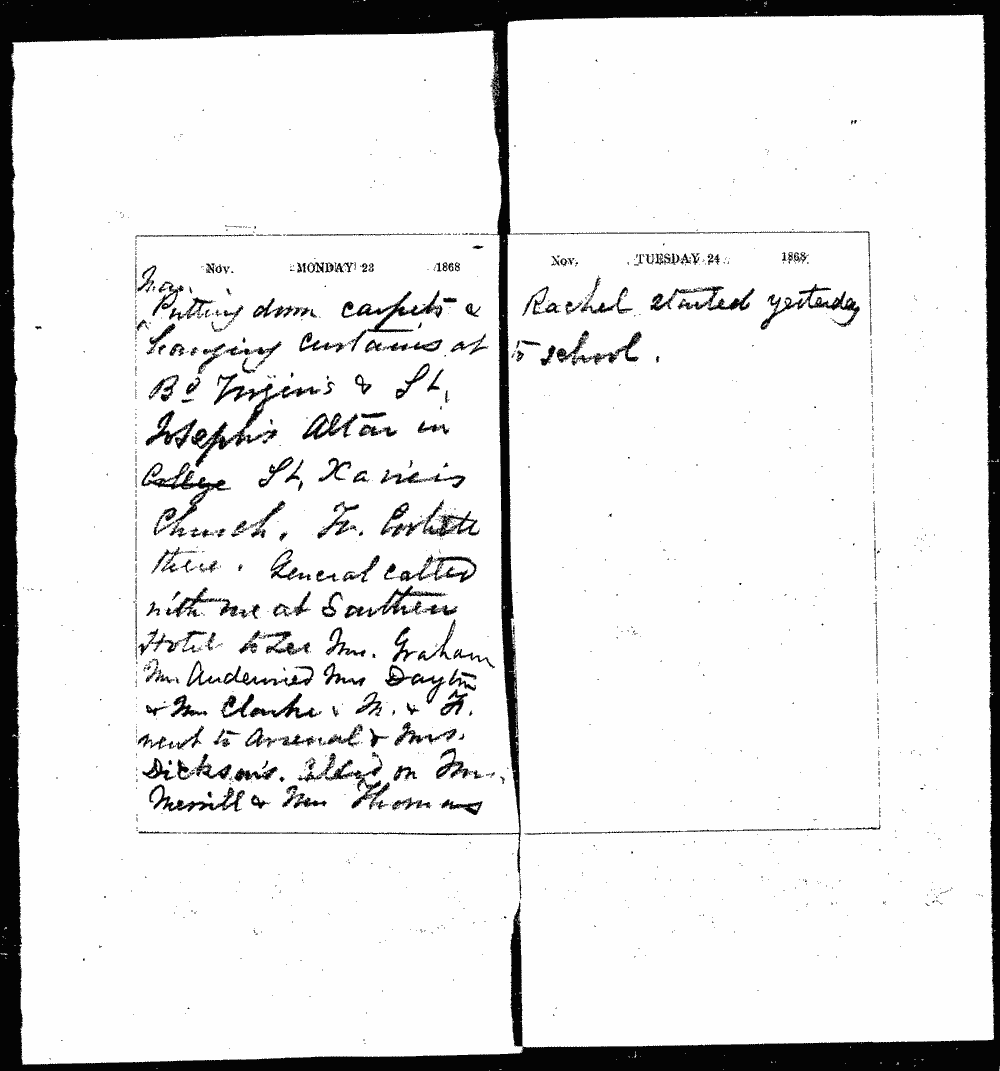 Nov. MONDAY 23 1868
Nov.
Putting down carpets &
hanging curtains at
Bd Virgin's & St.
Joseph's Altar in
College St. Xavier's
Church. Fr. Corbett
there. General called
with me at Southern
Hotel to see Mrs. Graham
Mrs Audenried Mrs Dayton
& Mrs Clarke & M. & F.
went to Arsenal & Mrs.
Dickson's. Called on Mrs.
Merrill & Mrs Thomas
Nov. TUESDAY 24 1868
Rachel started yesterday
to school.